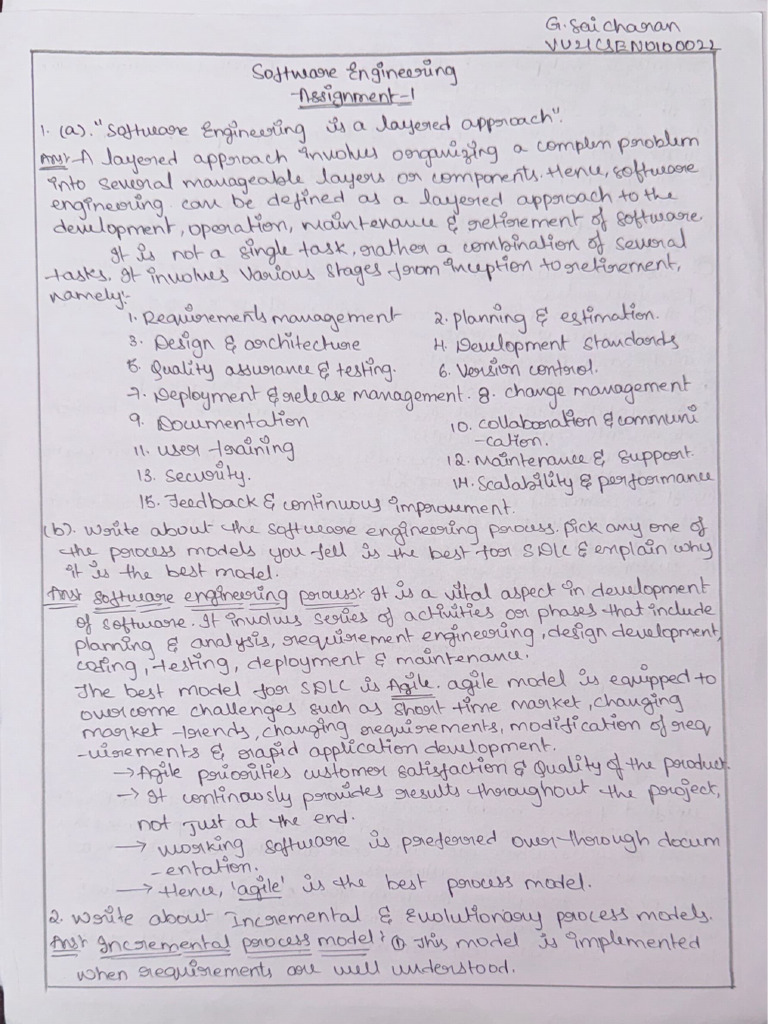 G. Sai charan
VU21CSEN0100022
Software Engineering
Assignment-1
1. (a). "Software Engineering is a layered approach".
Ans:- A layered approach involves organizing a complex problem
into several manageable layers or components. Hence, software
engineering can be defined as a layered approach to the
development, operation, maintenance & retirement of software.
It is not a single task, rather a combination of several
tasks. It involves various stages from inception to retirement,
namely:-
1. Requirements management 2. planning & estimation.
3. Design & architecture 4. Development standards
5. Quality assurance & testing. 6. Version control.
7. Deployment & release management. 8. change management
9. Documentation 10. collaboration & communi
-cation.
11. user training 12. Maintenance & support.
13. Security. 14. Scalability & performance
15. Feedback & continuous improvement.
(b). Write about the software engineering process. pick any one of
the process models you fell is the best for SDLC & explain why
it is the best model.
Ans: software engineering process:- It is a vital aspect in development
of software. It involves series of activities or phases that include
planning & analysis, requirement engineering, design development,
coding, testing, deployment & maintenance.
The best model for SDLC is Agile. agile model is equipped to
overcome challenges such as short time market, changing
market trends, changing requirements, modification of req
-uirements & rapid application development.
→ Agile priorities customer satisfaction & Quality of the product.
→ It continously provides results throughout the project,
not just at the end.
→ working software is preferred over thorough docum
-entation.
→ Hence, 'agile' is the best process model.
2. Write about Incremental & Evolutionary process models.
Ans: Incremental process model: ① This model is implemented
when requirements are well understood.